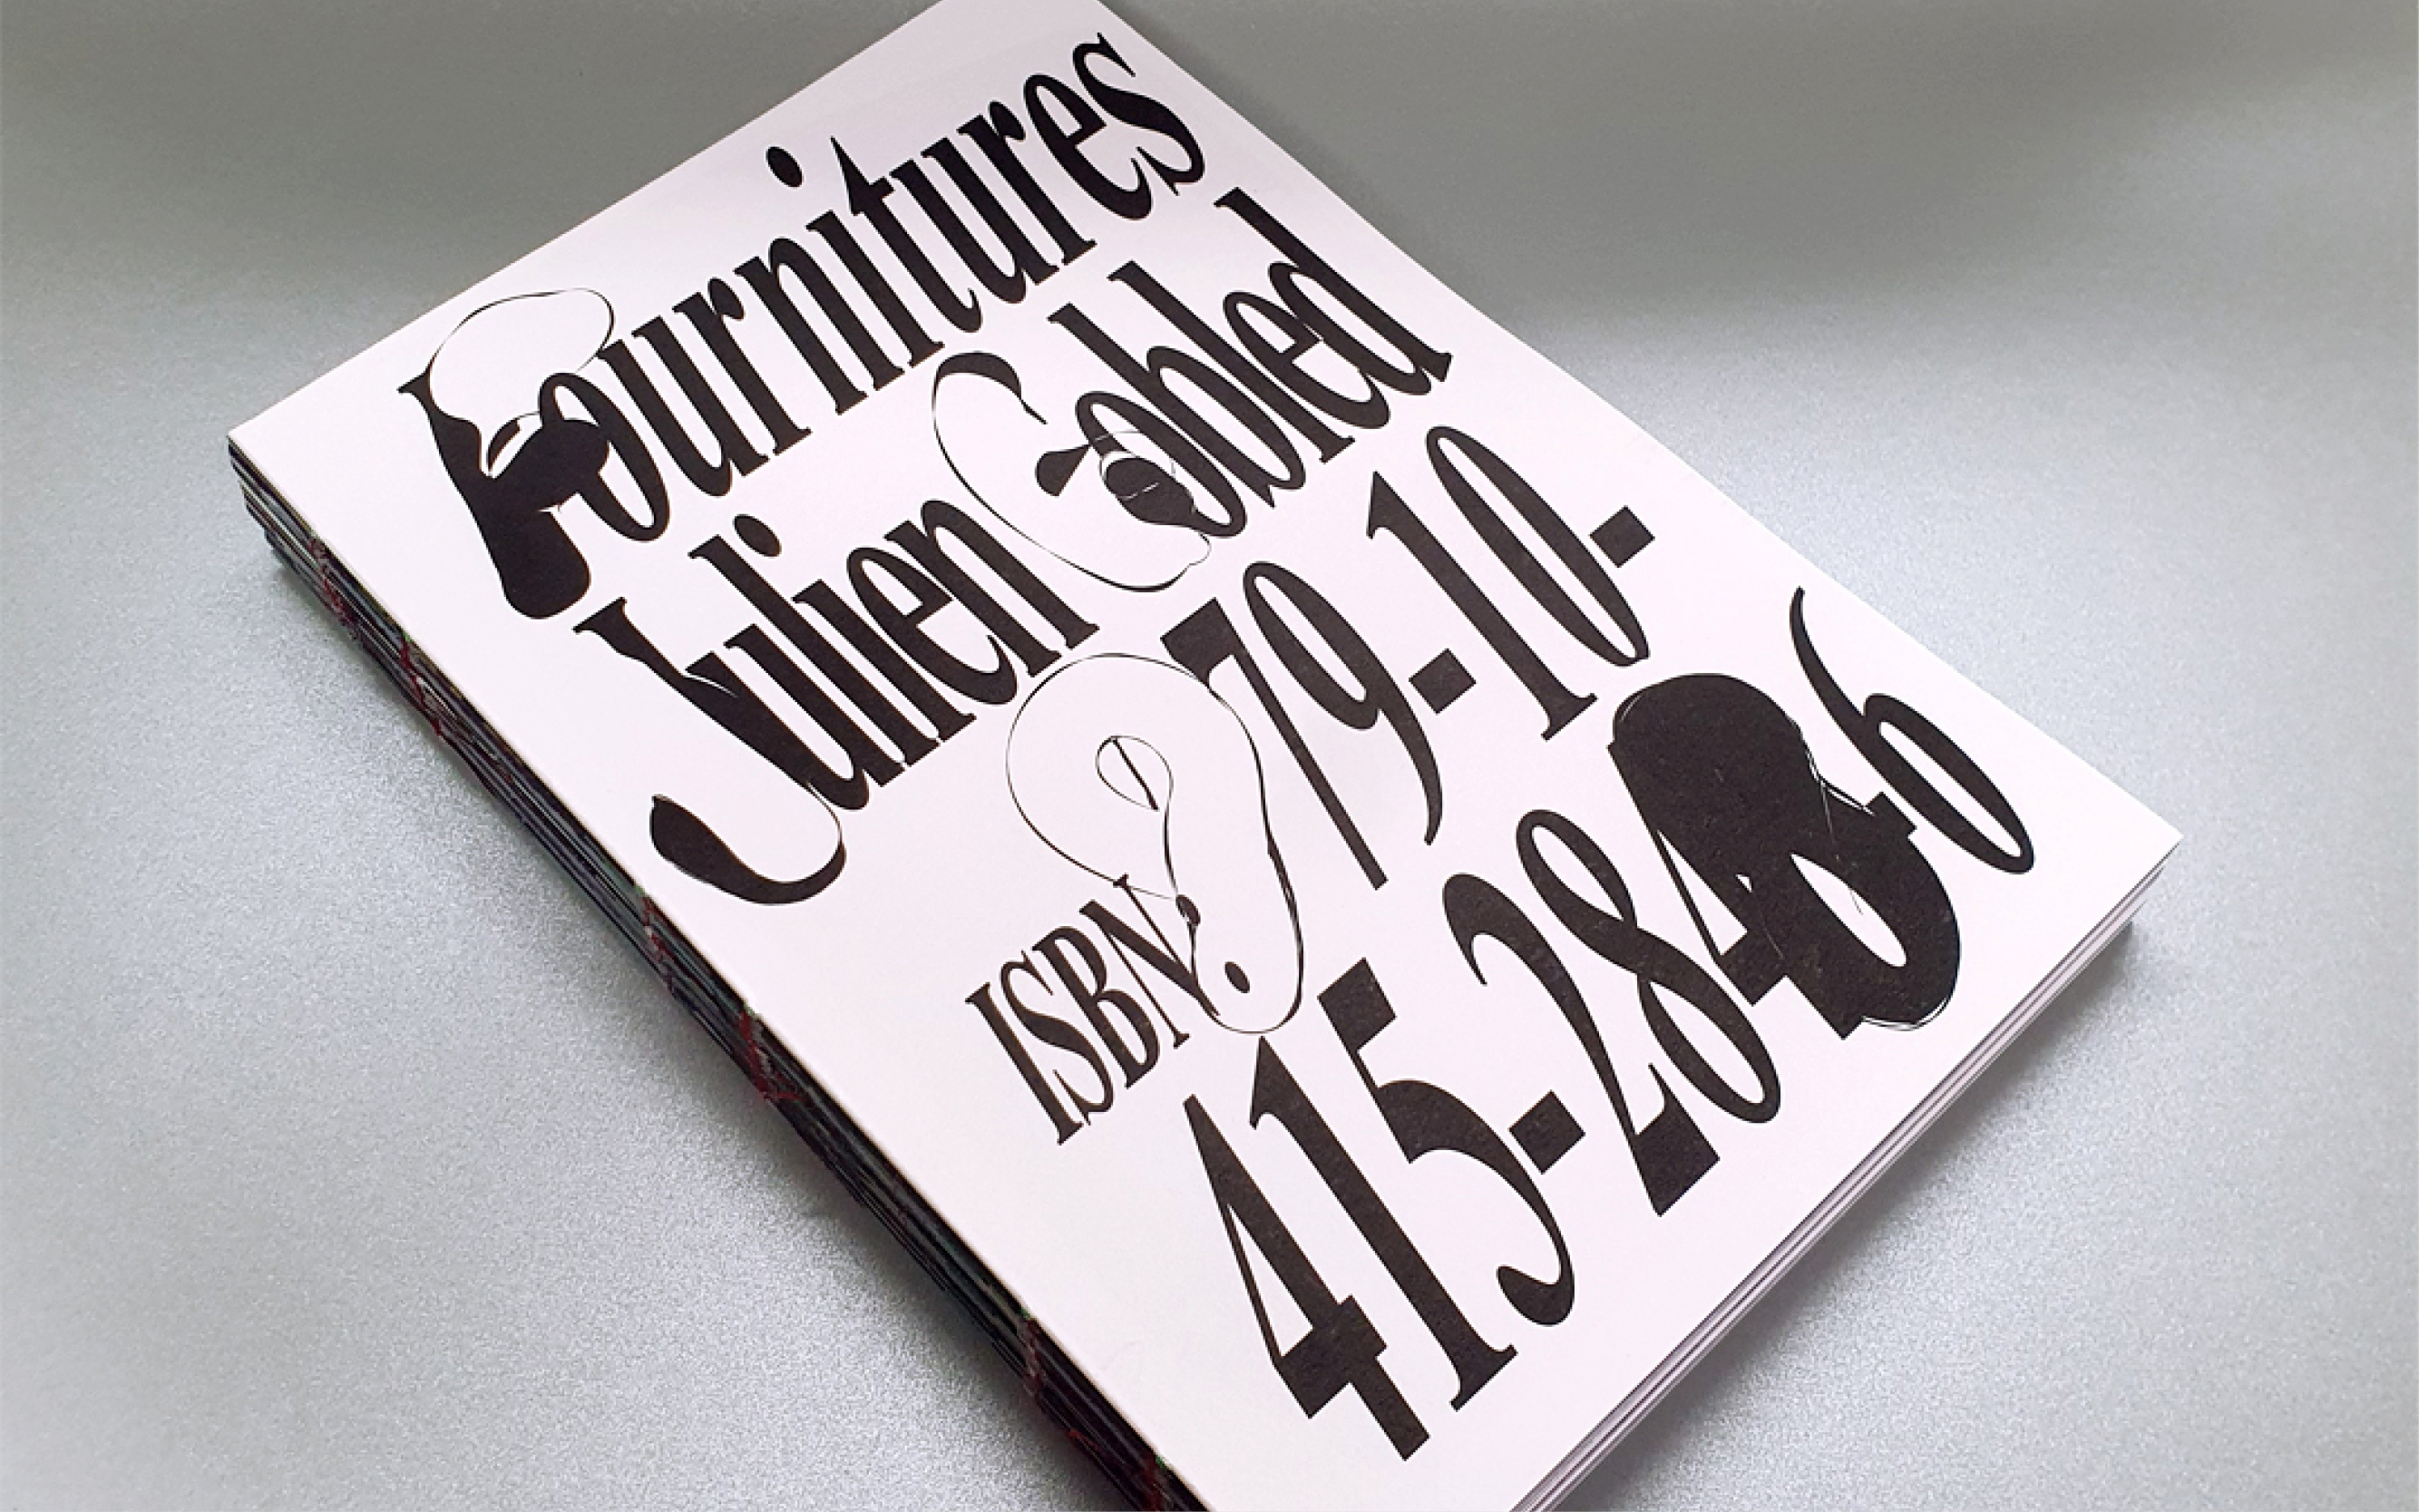 Fournitures
Julien Gobled
ISBN 979-10-
415-2848-6